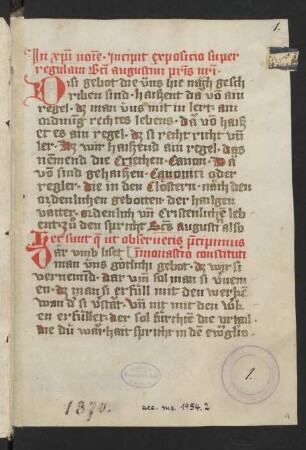 1.
In xpi noīe. Incipit expositio super
regulam bti augustini pris nri.
Disi gebot die vns hie nach gesch
riben sind. haissent da vō ain
regel. dz man vns mit in lert. ain
ordnung rechtes lebens. da vō haiss
et es ain regel. dz si recht richt vn
ler. dz wir haissend ain regel. das
nemend die Criechen. Canon. da
vō sind gehaissen. Canonici oder
regler. die in den Clöstern. nach den
ordenlichen gebotten. der hailgen
vatter. ordenlich vn Cristenliche leb
ent. zu den spricht Scs augusti also
Hec sunt que ut obseruetis precipimus
in monasterio constituti
Dar vmb liset man vns götlichi gebot. dz wir si
vernemind. dar vm sol man si vnem
en. dz man si erfüll mit den werken
wan d si vstat. vn nit mit den wken
er füllet. der sol fürchten die vrtail.
die du war hait spricht in dem ewglio.
1.
1870.
acc. ms. 1954.2